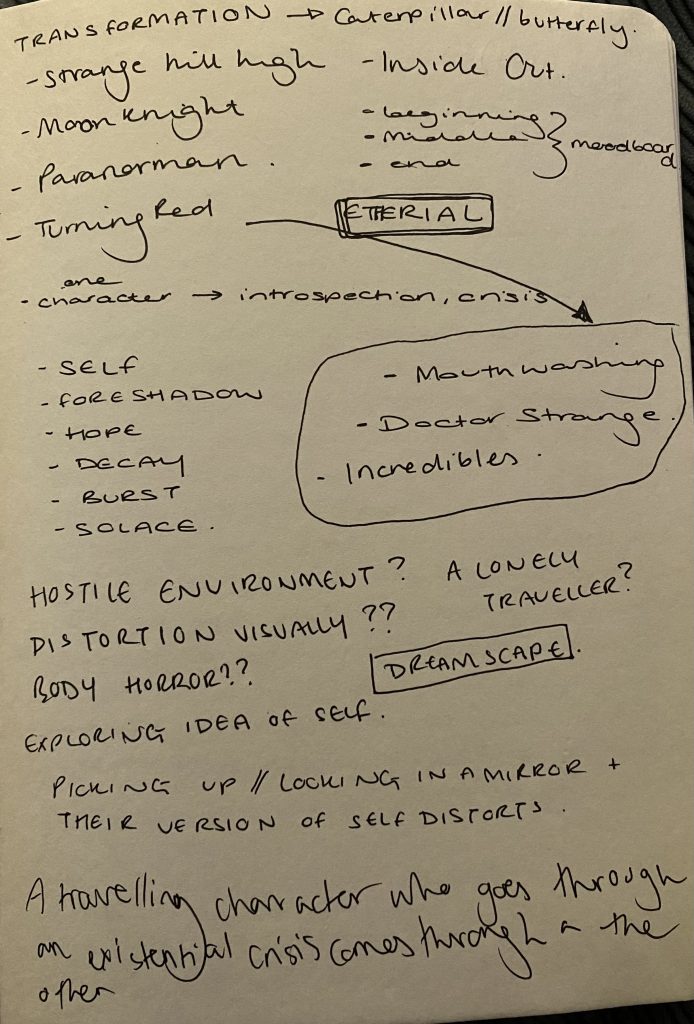 TRANSFORMATION → Caterpillar // butterfly.
- Strange hill high
- Inside Out.
- Moon Knight
- beginning
- middle
- end
moodboard
- Paranorman.
- Turning Red
ETHERIAL
one
- character → introspection, crisis
- SELF
- FORESHADOW
- HOPE
- DECAY
- BURST
- SOLACE.
- Mouthwashing
- Doctor Strange.
- Incredibles.
HOSTILE ENVIRONMENT? A LONELY
TRAVELLER?
DISTORTION VISUALLY??
BODY HORROR??
DREAMSCAPE.
EXPLORING IDEA OF SELF.
PICKING UP // LOOKING IN A MIRROR +
THEIR VERSION OF SELF DISTORTS.
A travelling character who goes through
an existential crisis comes through the
other